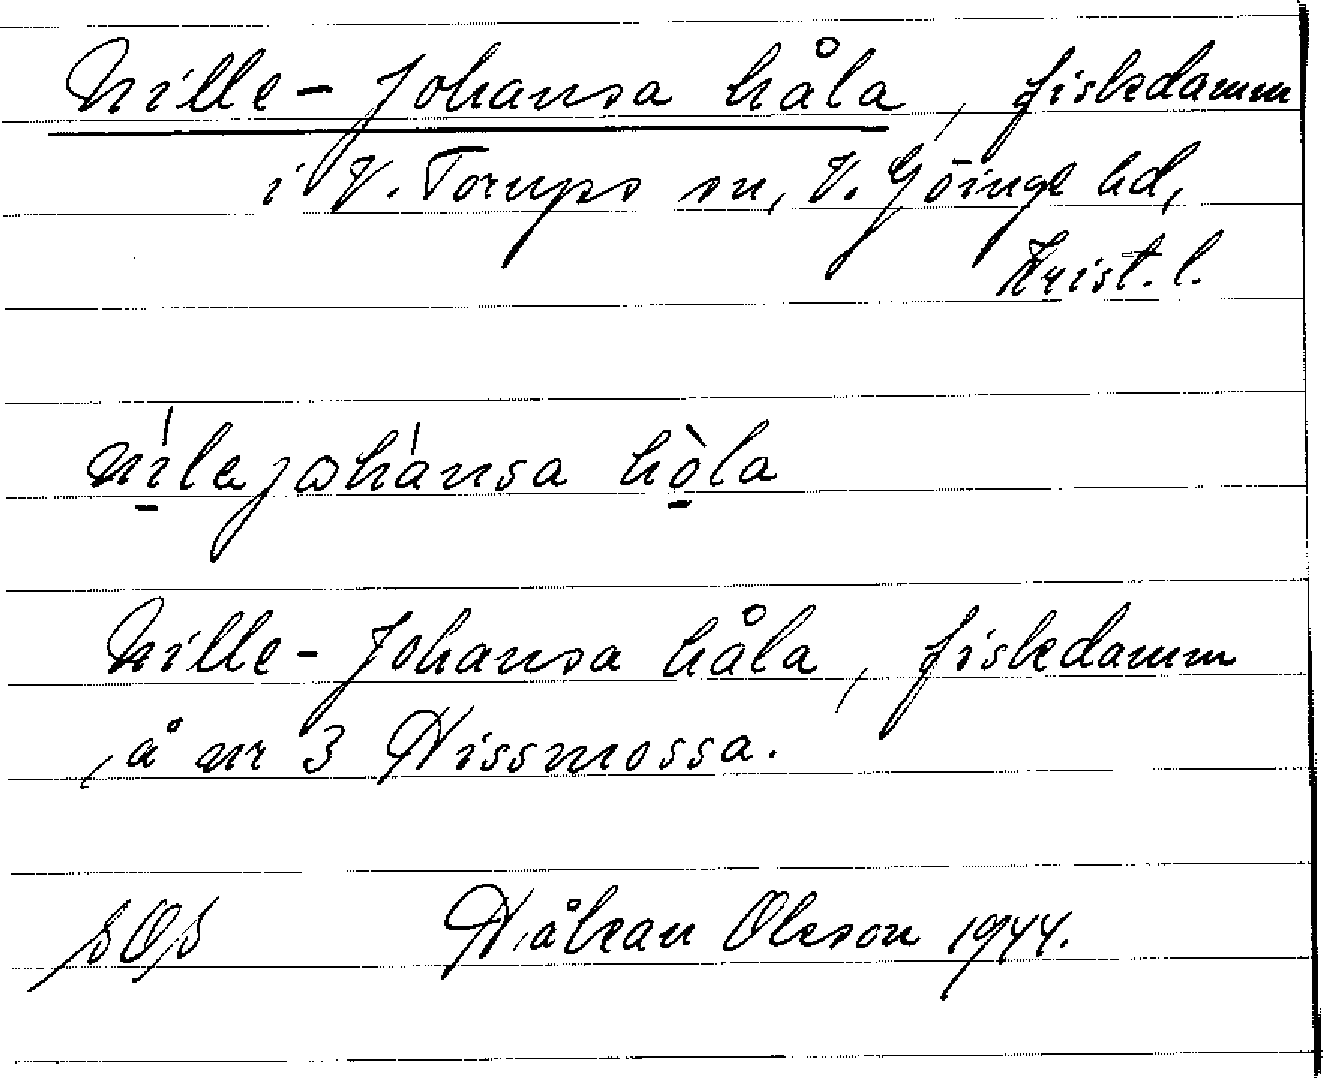 Nille-Johansa håla, fiskedamm
i V. Torups sn, V. Göinge hd,
Krist. l.
níləjωhánsa hòla
Nille-Johansa håla, fiskedamm
å nr 3 Hissmossa.
SOS Håkan Olsson 1944.